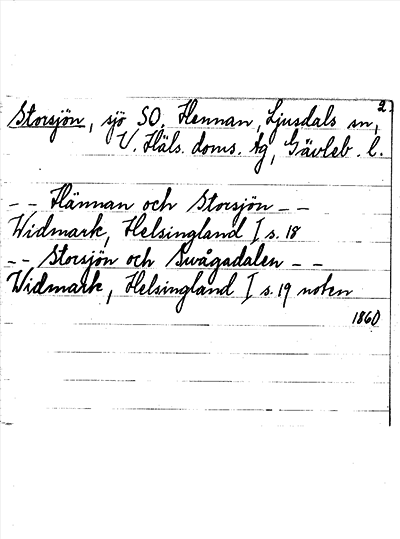 2
Storsjön, sjö SO. Hennan, Ljusdals sn,
V. Häls. doms. tg, Gävleb. l.
-- Hännan och Storsjön --
Widmark, Helsingland I s. 18
-- Storsjön och Swågadalen --
Widmark, Helsingland I s. 19 noten
1860